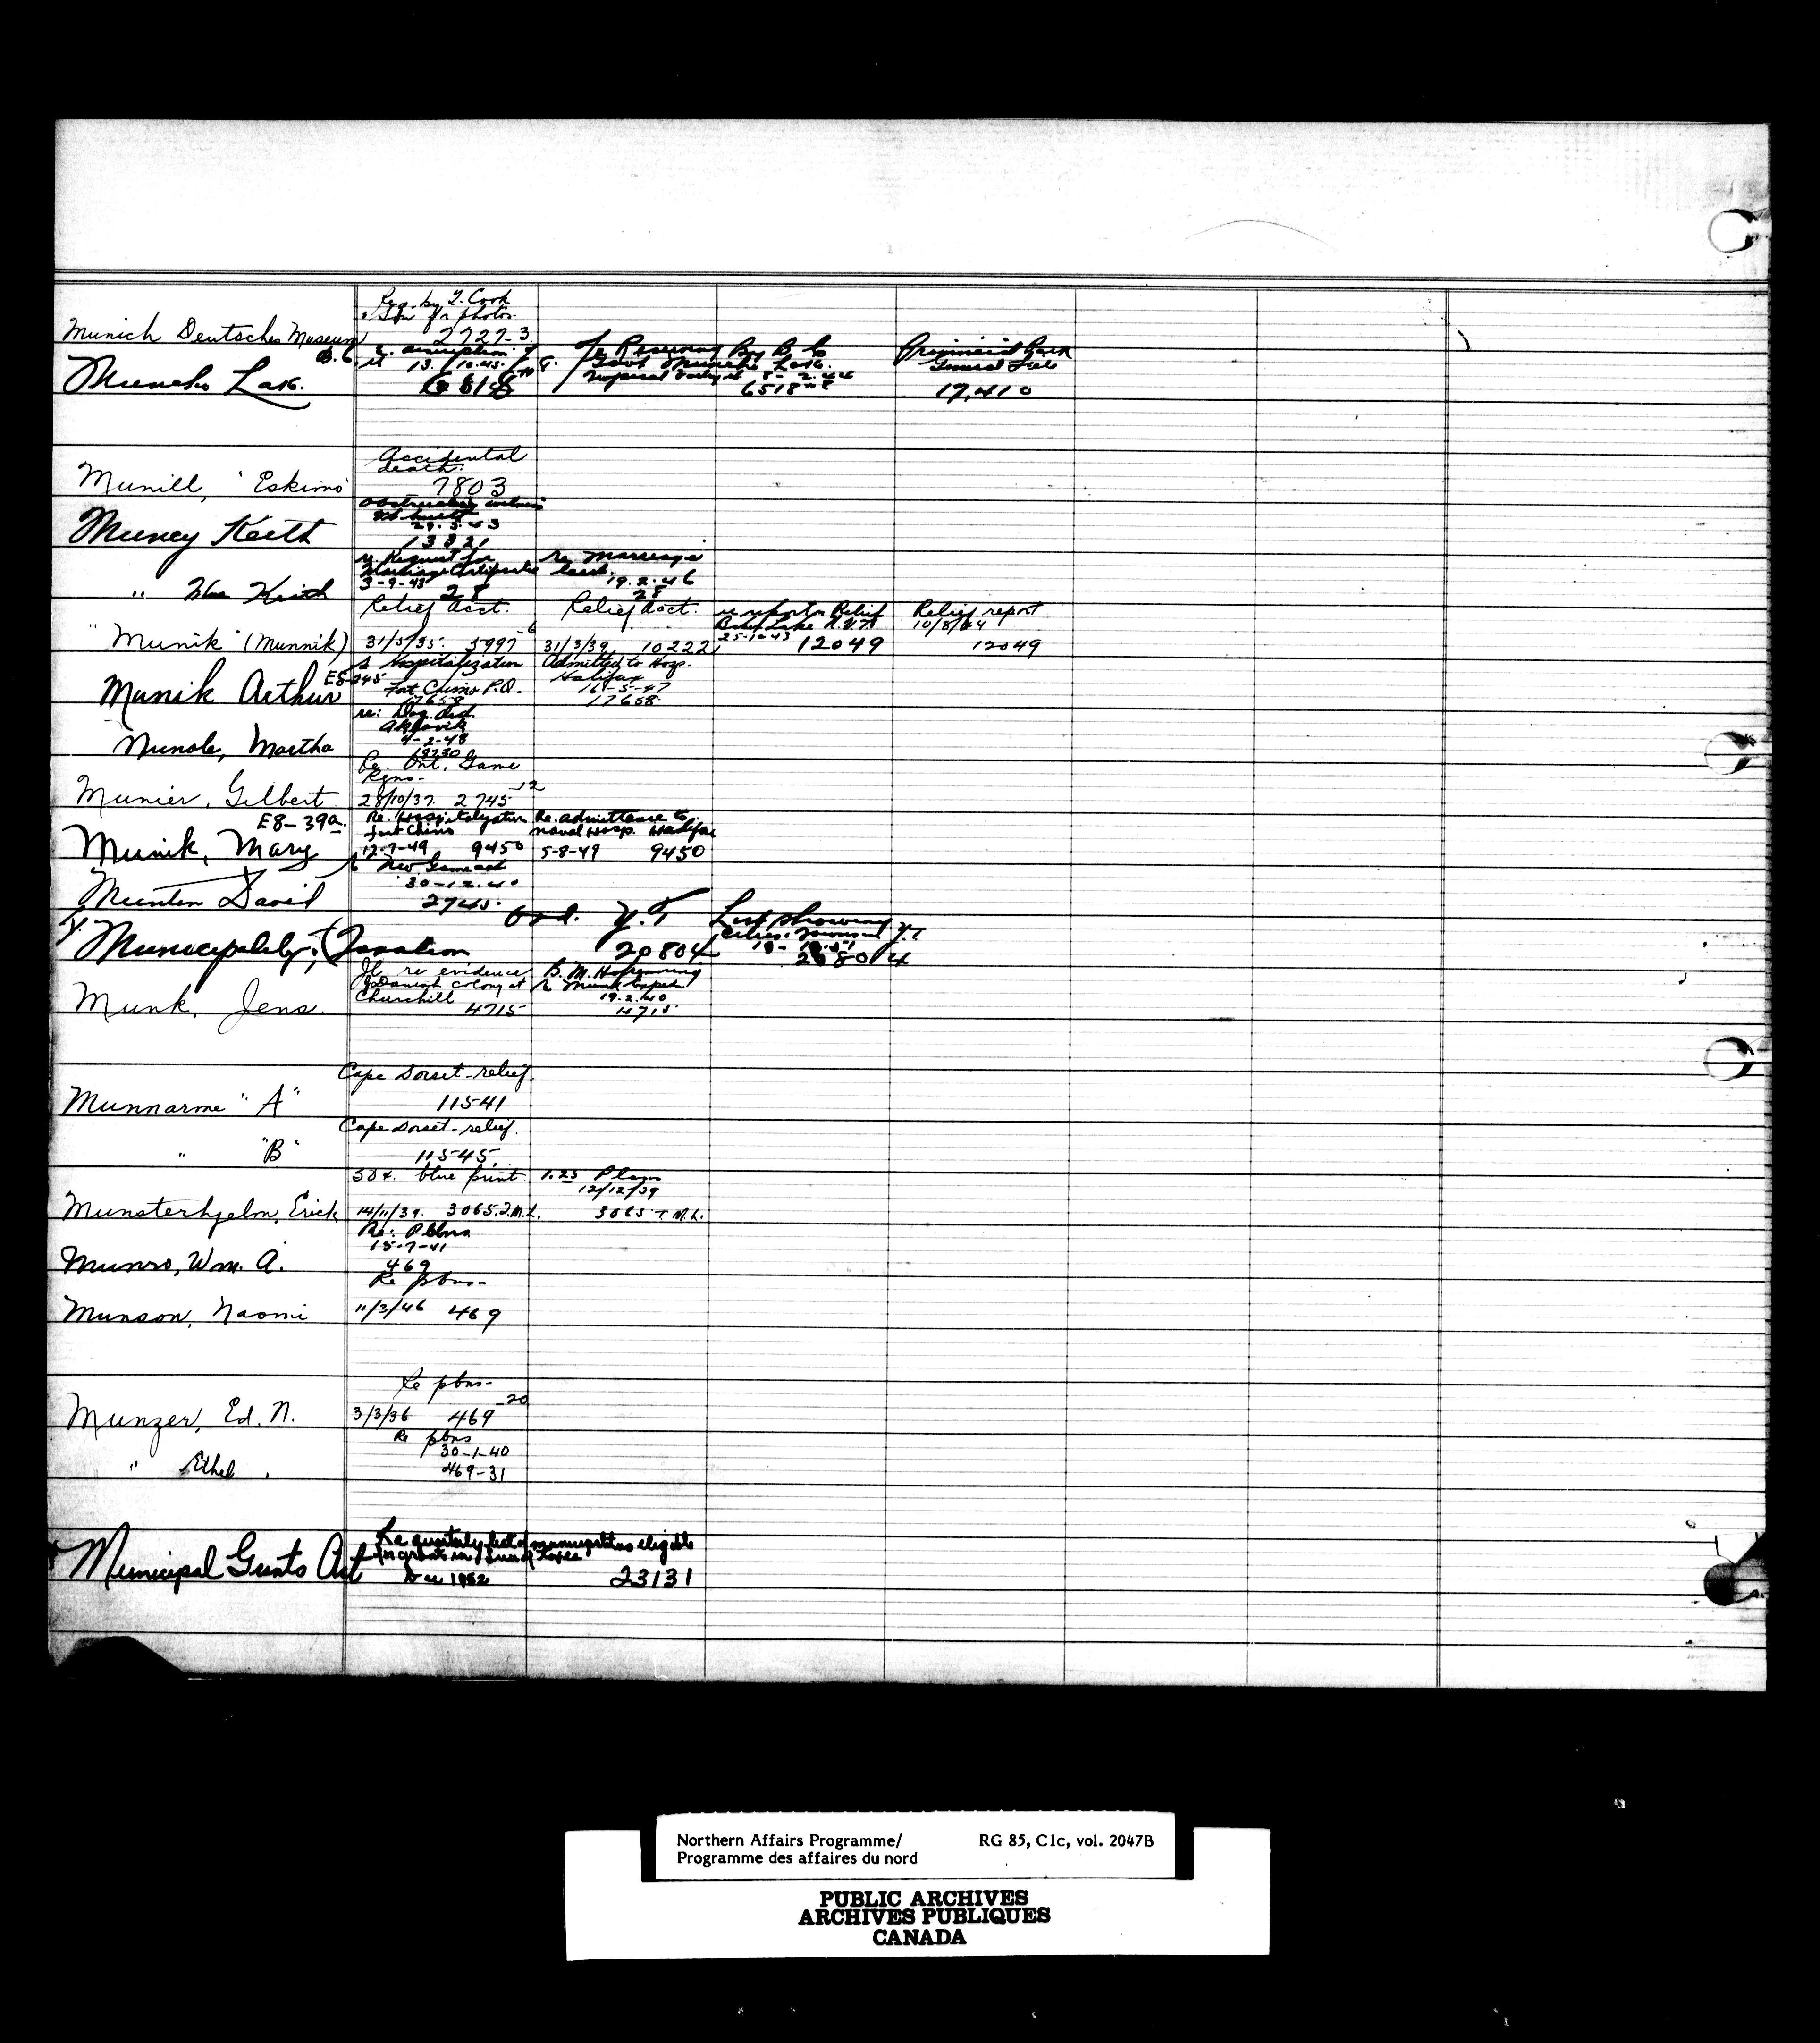 Req. by T. Cook
for photos.
Munich Deutsches Museum 2727-3
B.C.
Muncho Lake. 13.10.45.
6518
Re Reserving By B.C.
Govt Muncho Lake.
Imperial 8-2-44
6518
Provincial Park
General File
17,410
Accidental
death.
Munill, "Eskimo" 7803
Muncy Keith
29.3.43
13321
" Keith
re. Request for
Marriage Certificate
3-9-43 28
re. Marriage
19.2.46
28
"Munik" (Munnik)
Relief Acct.
31/3/35. 5997
Relief Acct.
31/3/39. 10222
re report on Relief
Baker Lake N.W.T.
25-1-43 12049
Relief report
10/8/44
12049
Munik Arthur E8-245
Hospitalization
Fort Chimo P.Q.
17658
Admitted to Hosp.
Halifax
16-5-47
17658
Munole, Martha
re: Dog Ord.
Aklavik
4-2-48
Munier, Gilbert
Re. Ont. Game
Regns-
28/10/37. 2745-12
E8-39a.
Munik, Mary
Re. Hospitalization
Fort Chimo
12-7-49 9450
Re. admittance to
naval Hosp. Halifax
5-8-49 9450
Munten David
New Game act
30-12-40
2745.
Municipality; Taxation
Ord. Y.T
20804
List showing
Cities, Towns in Y.T.
20804
Munk, Jens.
re evidence
of Danish colony at
Churchill
4715
B. M.
re Munk Exped
19.2.40
4715
Cape Dorset-relief.
Munnarme "A" 11541
Cape Dorset-relief.
" "B" 11545
Munsterhjelm, Erick
50¢. blue print
14/11/39. 3065.T.M.L.
1.25 Plan
12/12/39
3065 T.M.L.
Munro, Wm. A.
Re: Pbns
15-7-41
469
Re pbns-
Munson, Naomi 11/3/46 469
Re pbns-
Munzer, Ed. N. 3/3/36 469-20
Re pbns
30-1-40
" Ethel. 469-31
Municipal Grants Act
Re quarterly list of municipalities eligible
for grants in lieu of taxes
Dec 1952 23131
Northern Affairs Programme/ RG 85, C1c, vol. 2047B
Programme des affaires du nord
PUBLIC ARCHIVES
ARCHIVES PUBLIQUES
CANADA